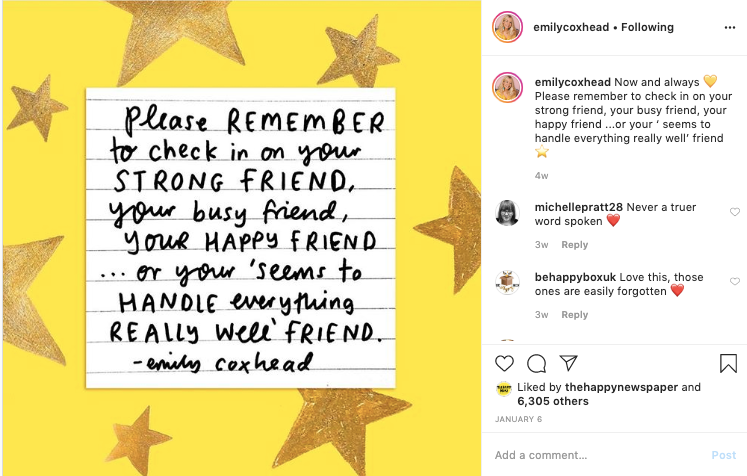 please REMEMBER
to check in on your
STRONG FRIEND,
your busy friend,
your HAPPY FRIEND
... or your 'seems to
HANDLE everything
REALLY well' FRIEND.
-emily coxhead
emilycoxhead • Following
emilycoxhead Now and always
Please remember to check in on your
strong friend, your busy friend, your
happy friend ...or your ‘ seems to
handle everything really well’ friend
4w
michellepratt28 Never a truer
word spoken ❤️
3w Reply
behappyboxuk Love this, those
ones are easily forgotten ❤️
3w Reply
Liked by thehappynewspaper and
6,305 others
JANUARY 6
Add a comment... Post